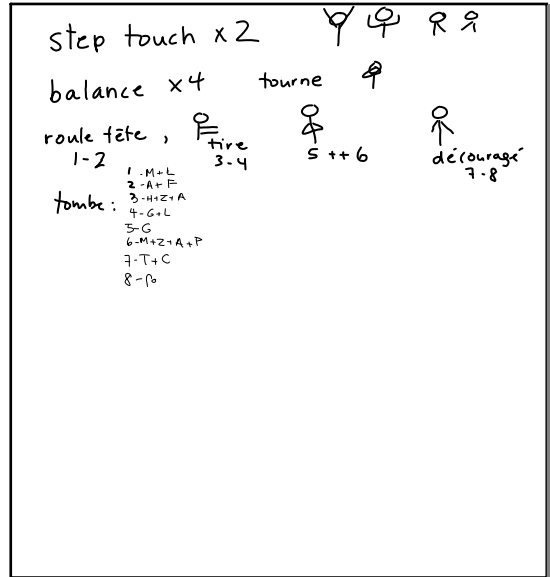 step touch x2
balance x4 tourne
roule tête, tire
1-2 3-4 5 ++ 6 décourage
7-8
tombe: 1-M+L
2-A+F
3-H+Z+A
4-G+L
5-G
6-M+Z+A+P
7-T+C
8-